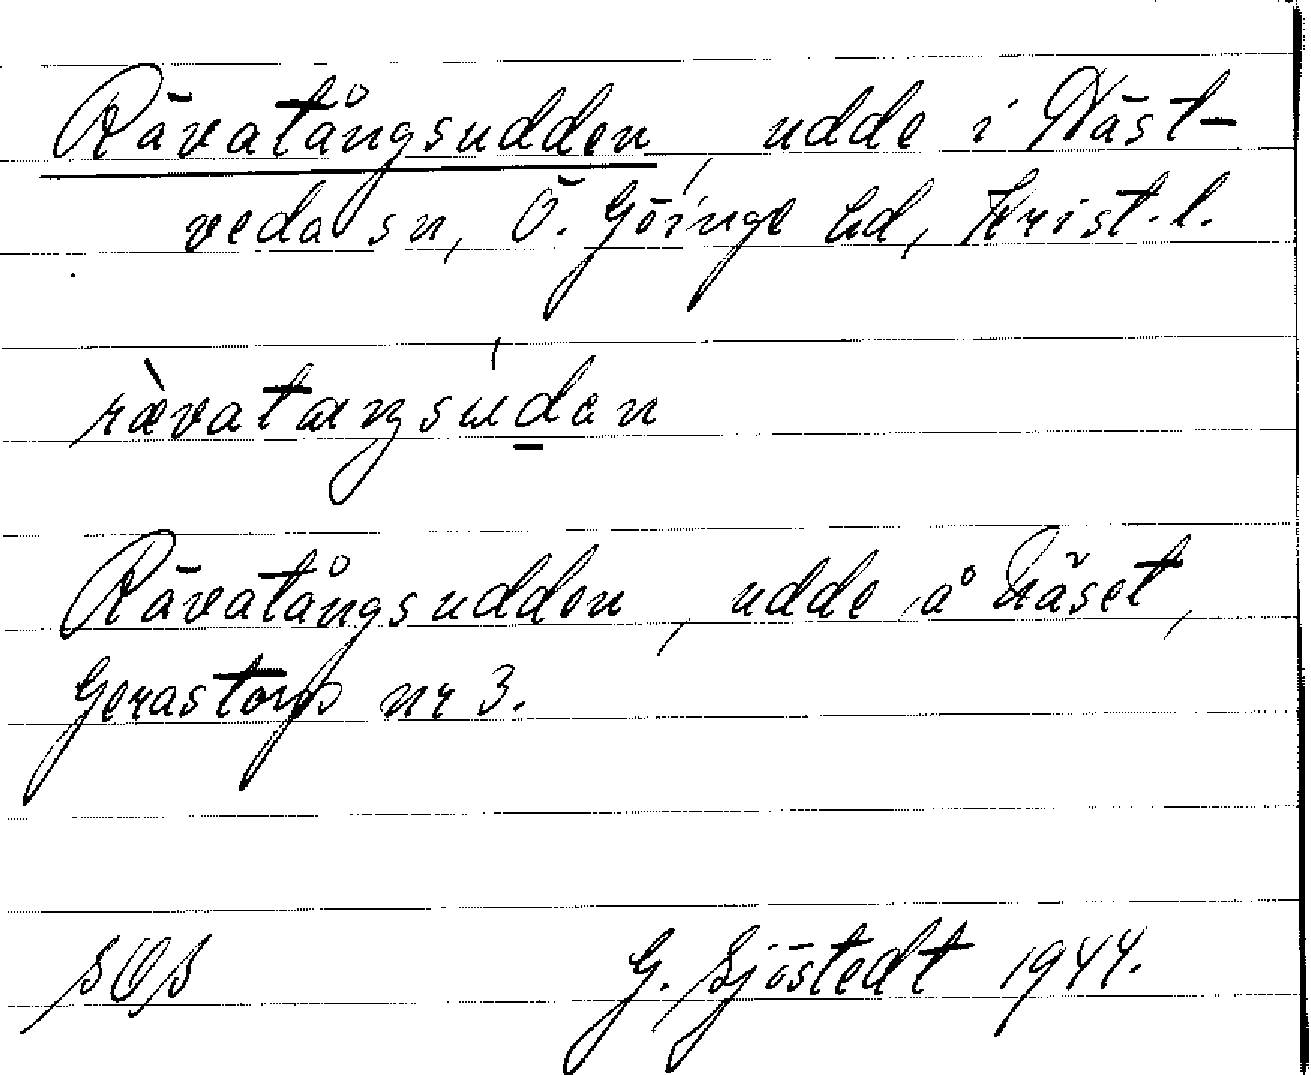 Rävatångsudden, udde i Näst-
veda sn, Ö. Göinge hd, Krist. l.
ràvataŋsúdan
Rävatångsudden, udde å Näset,
Gerastorp nr 3.
SOS G. Sjöstedt 1944.